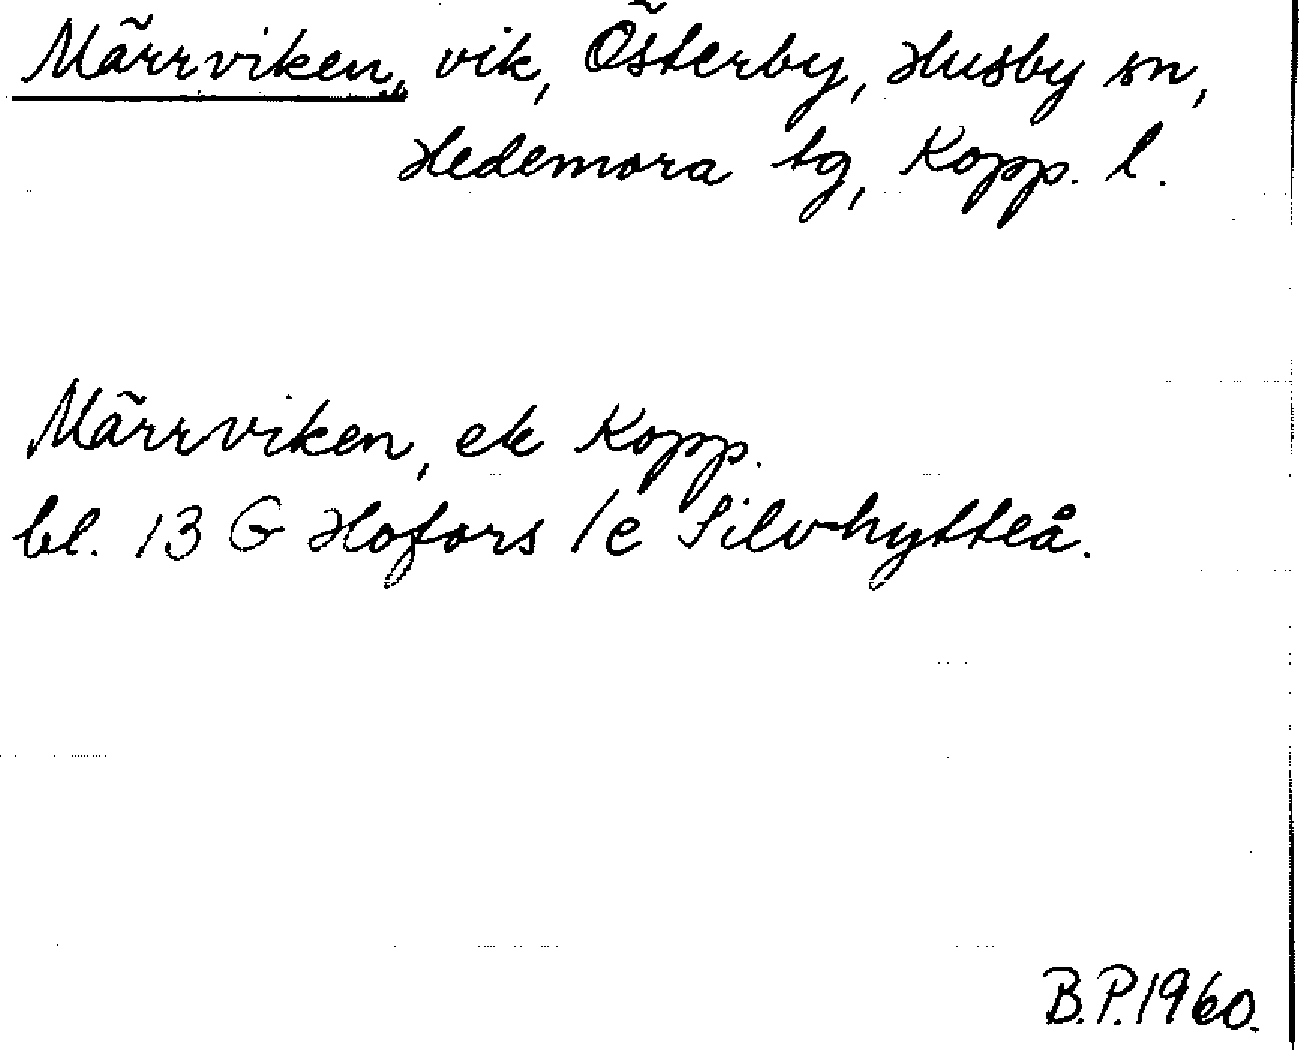 Märrviken, vik, Österby, Husby sn,
Hedemora tg, Kopp. l.
Märrviken, ek Kopp.
bl. 13 G Hofors 1c Silvhytteå.
B.P. 1960.